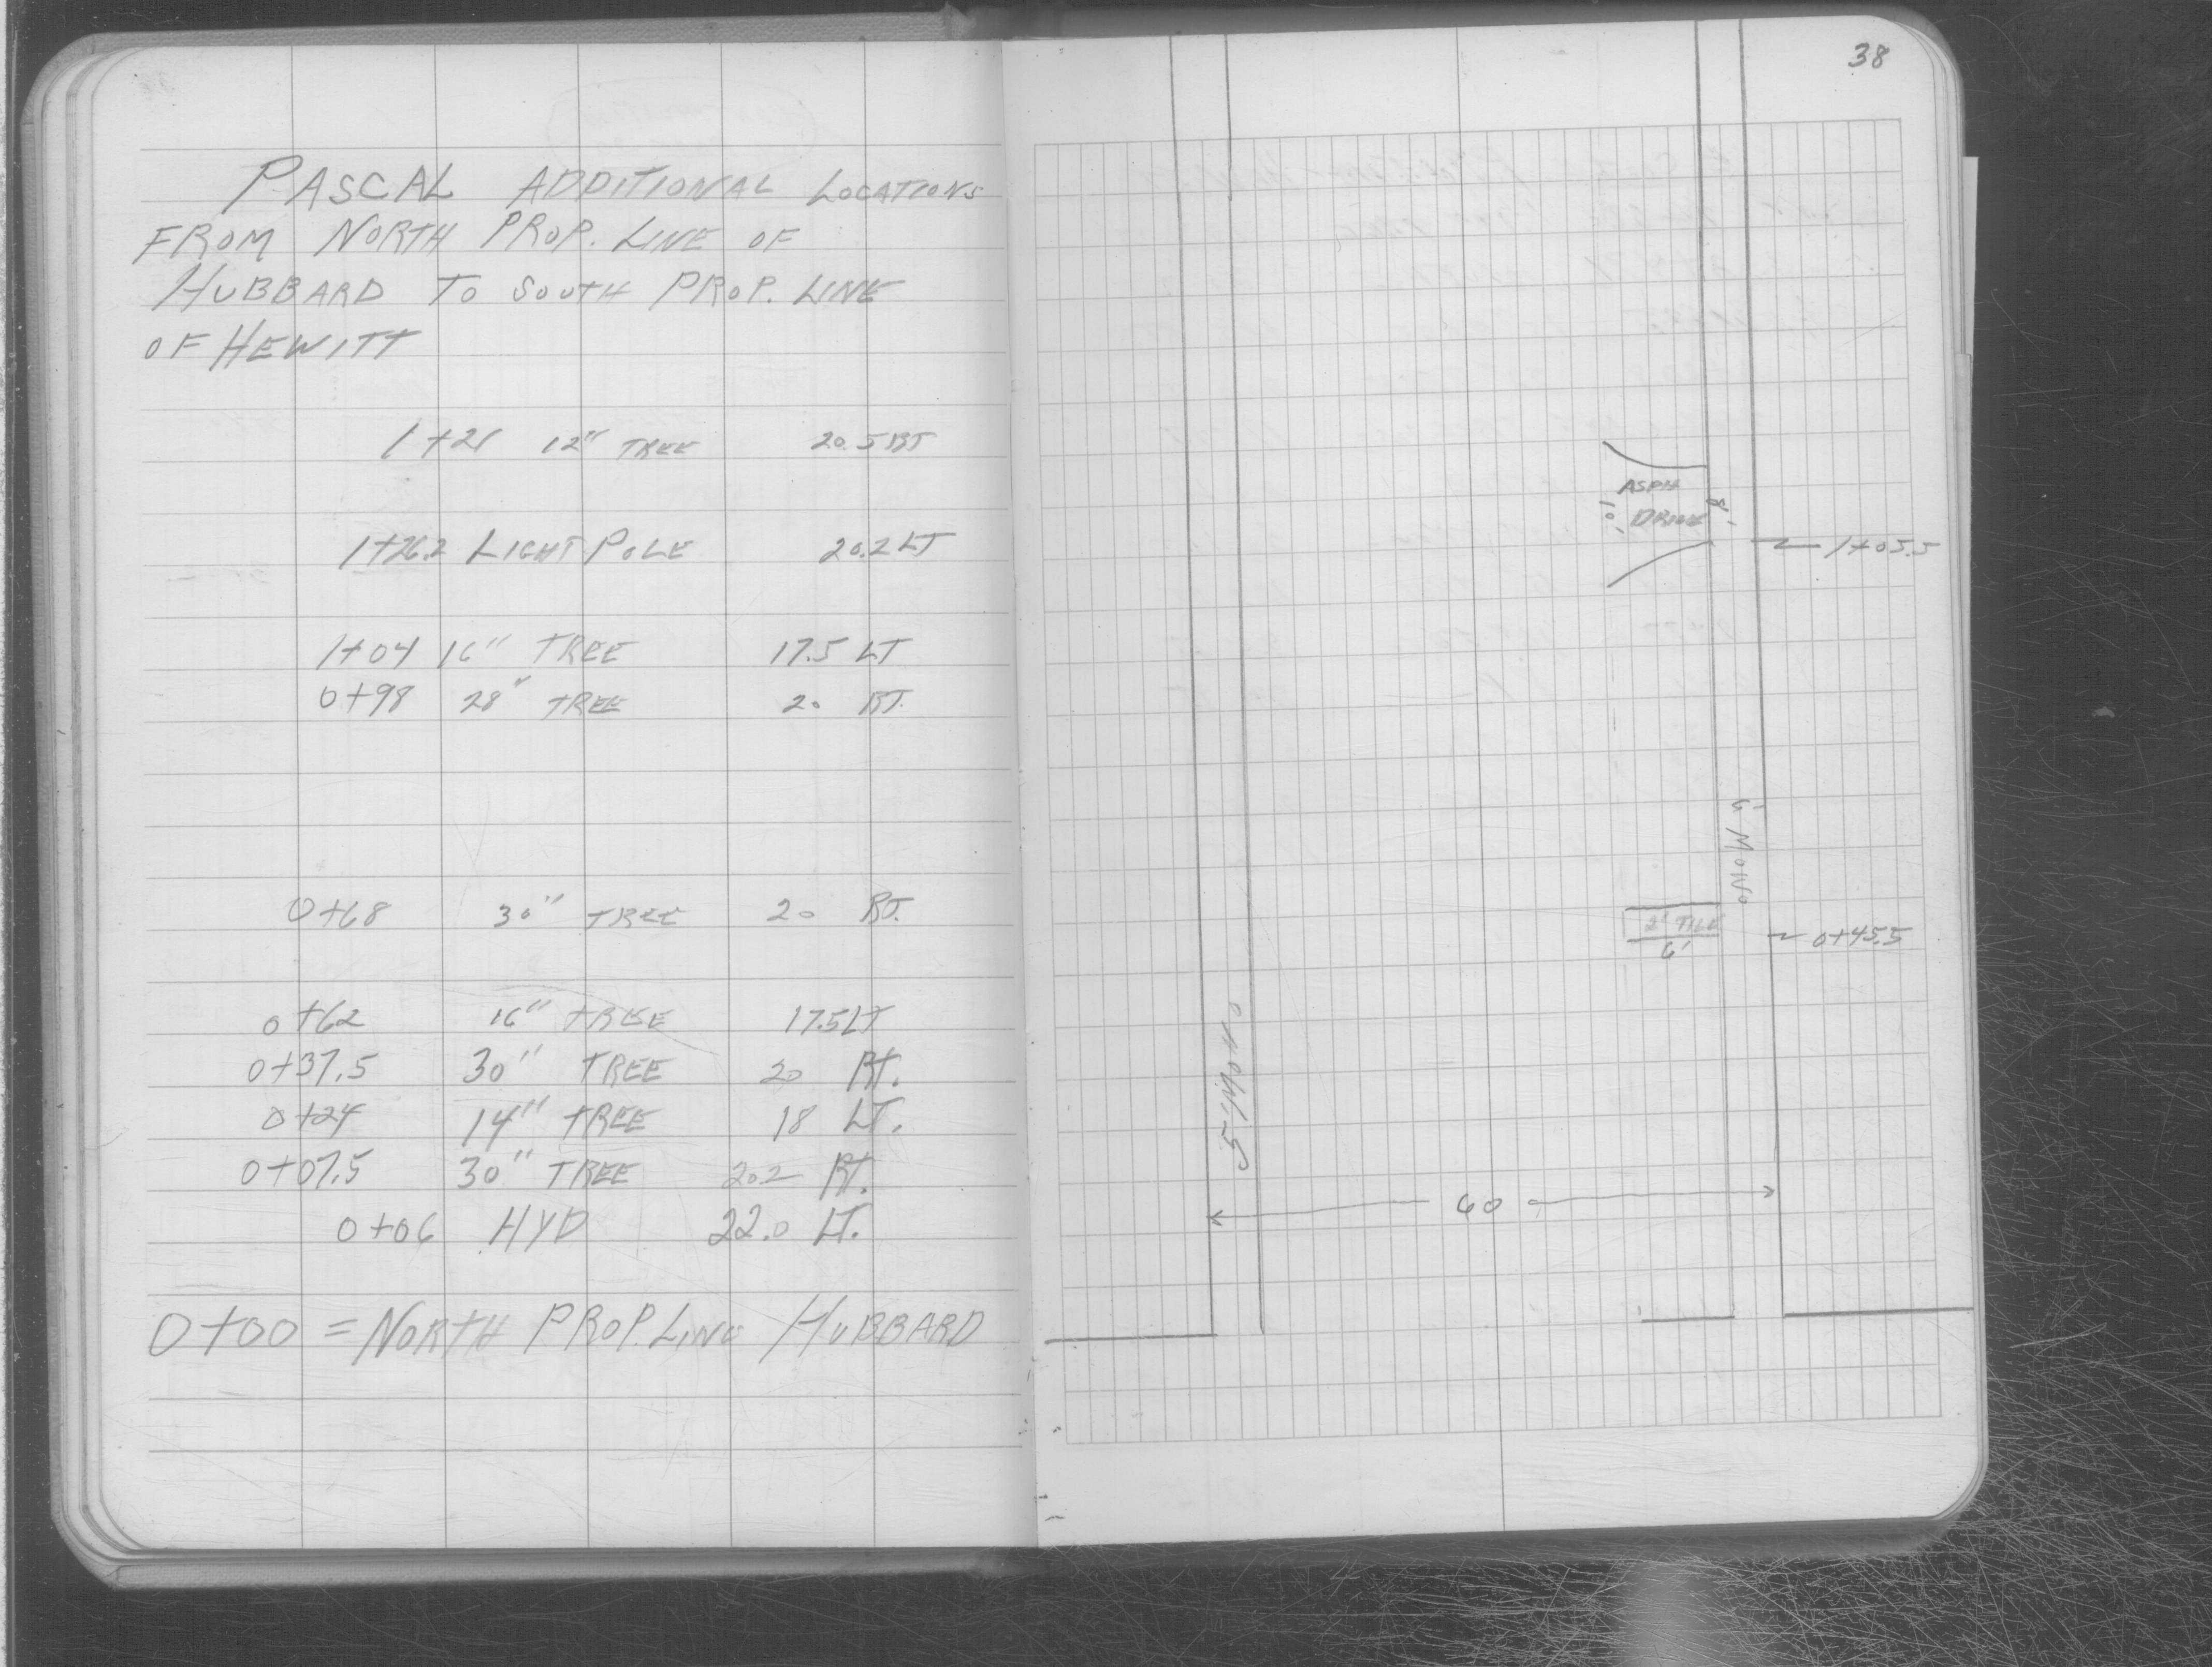 PASCAL ADDITIONAL LOCATIONS
FROM NORTH PROP. LINE OF
HUBBARD TO SOUTH PROP. LINE
OF HEWITT
1+21 12" TREE 20.5 RT
1+26.2 LIGHT POLE 20.2 LT
1+04 16" TREE 17.5 LT
0+98 28" TREE 20 RT.
0+68 30" TREE 20 RT.
0+62 16" TREE 17.5 LT
0+37.5 30" TREE 20 RT.
0+24 14" TREE 18 LT.
0+07.5 30" TREE 20.2 RT.
0+06 HYD 22.0 LT.
0+00 = NORTH PROP. LINE HUBBARD
38
ASPH
DRIVE
10'
8'
1+05.5
6' MONO
2' TILE
6'
0+45.5
5' MONO
60